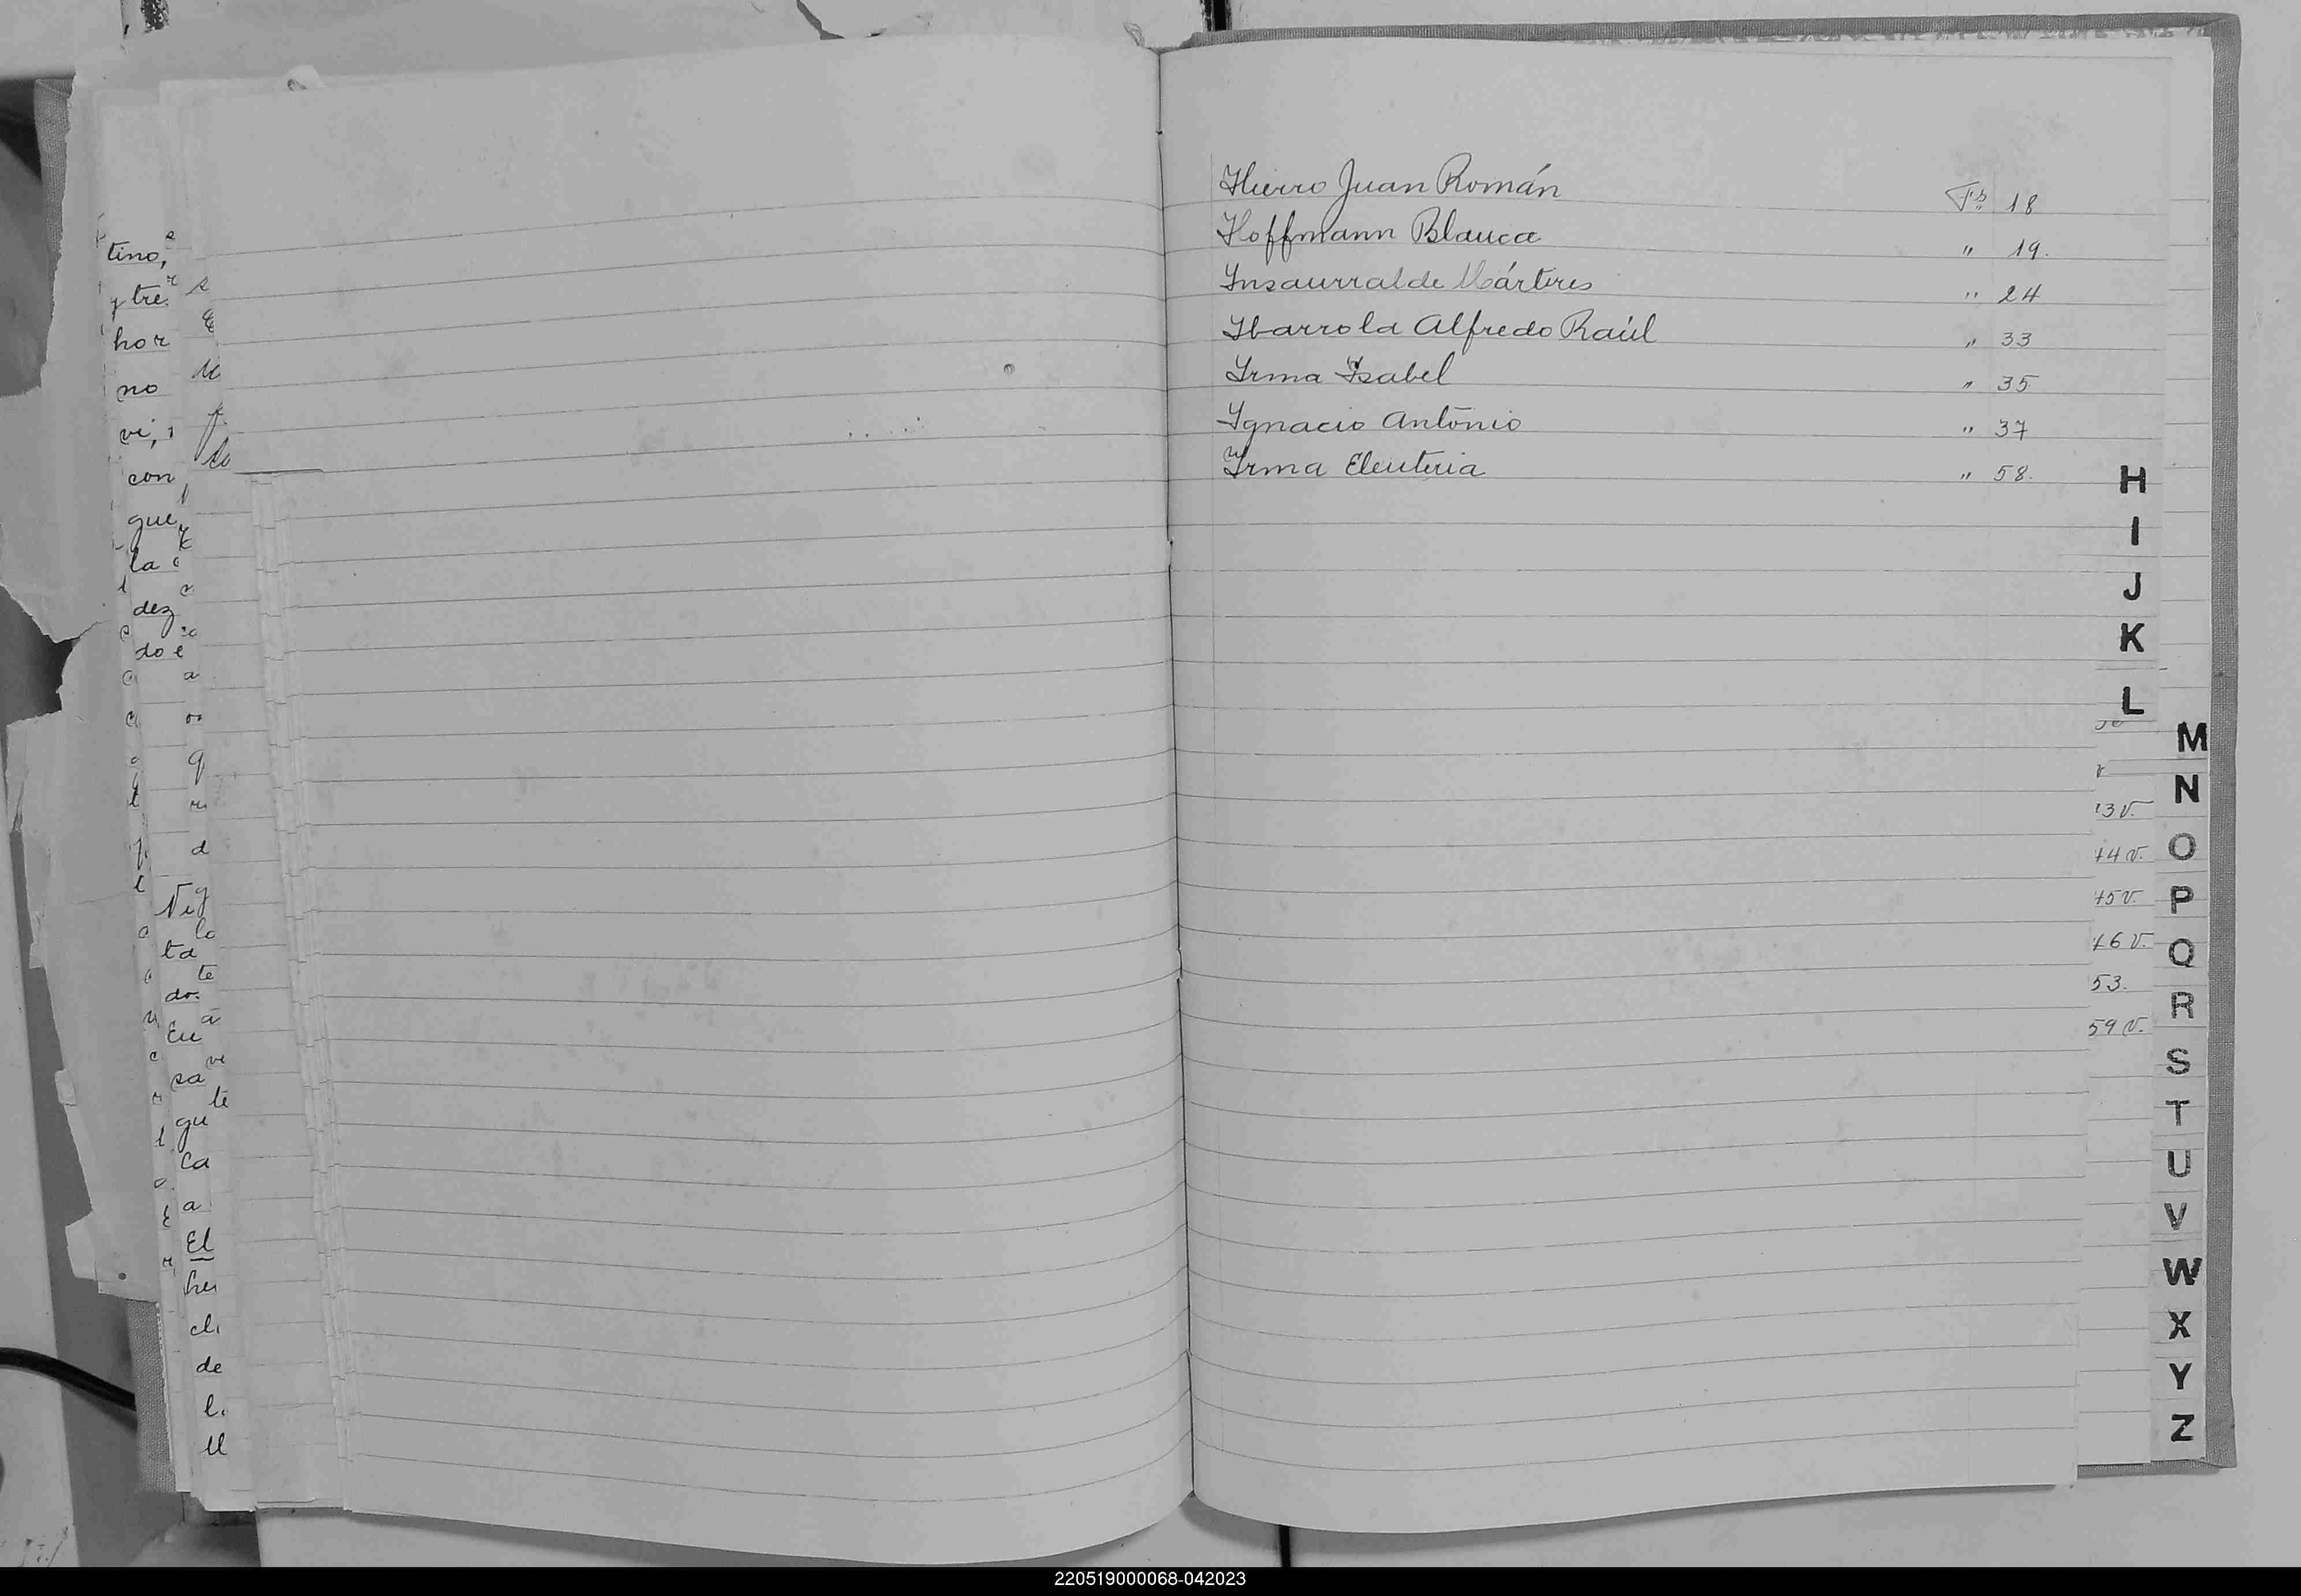 Hierro Juan Román Fs 18
Hoffmann Blanca " 19.
Insaurralde Mártires " 24
Ibarrola Alfredo Raúl " 33
Irma Isabel " 35
Ignacio Antonio " 37
Irma Eleuteria " 58.
H
I
J
K
L
M
N
O
P
Q
R
S
T
U
V
W
X
Y
Z
53.
59 v.
tino,
hor
no
vi,
con
que
la
dez
do e
ta
do.
Eu
sa
gu
Ca
a
El
de
te
220519000068-042023